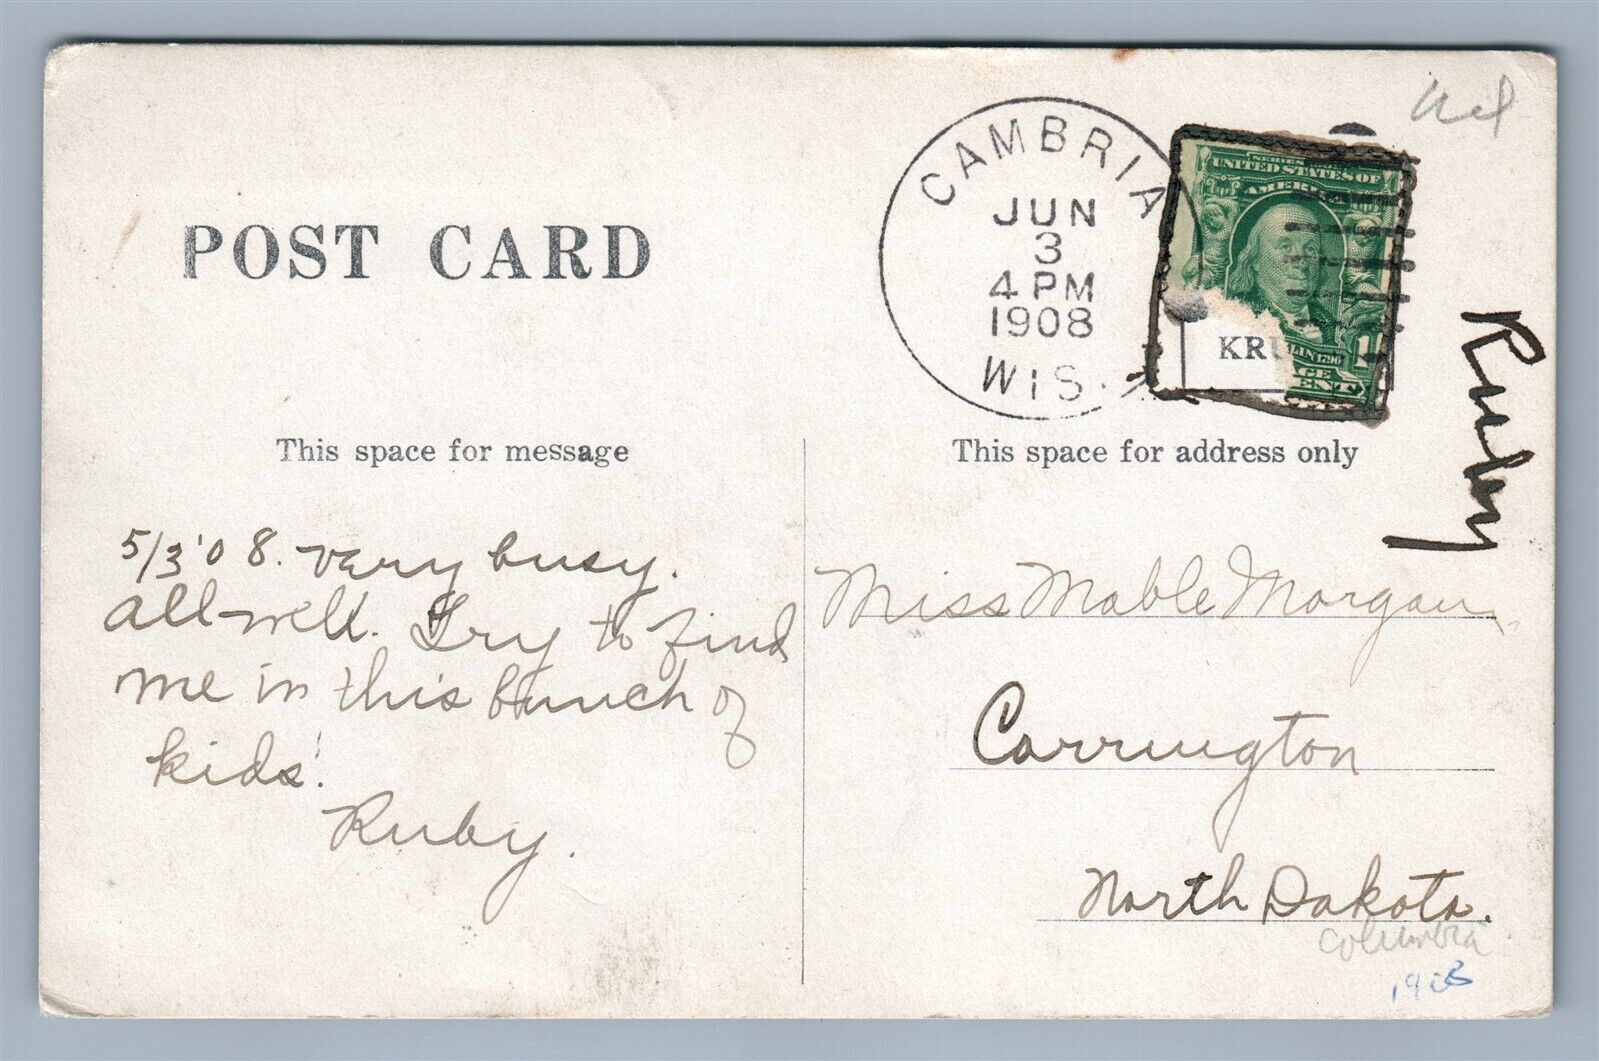 Wis
CAMBRIA
JUN
3
4 PM
1908
WIS.
SERIES
UNITED STATES OF
AMERI
KRU
LIN 1790
1
GE
ENT
POST CARD
This space for message
This space for address only
5/3 '08. Very busy.
All well. Try to find
me in this bunch of
kids!
Ruby.
Ruby
Miss Mable Morgan,
Carrington
North Dakota.
Columbia
1908